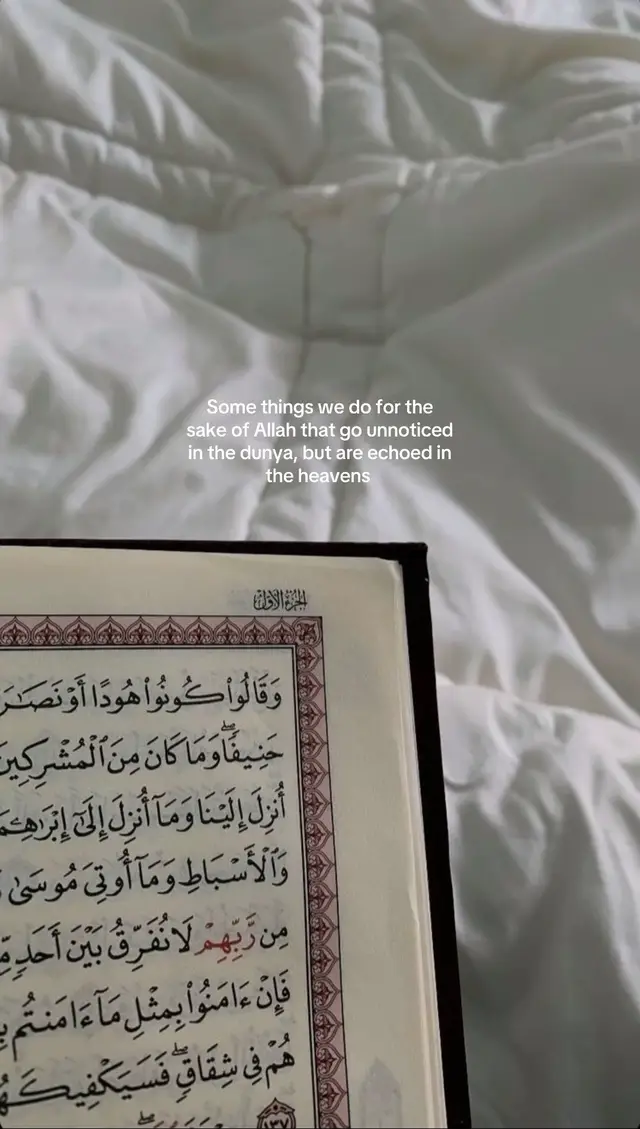 Some things we do for the
sake of Allah that go unnoticed
in the dunya, but are echoed in
the heavens
الجزء الأول
وَقَالُوا۟ كُونُوا۟ هُودًا أَوْ نَصَـٰرَ
حَنِيفًاۖ وَمَا كَانَ مِنَ ٱلْمُشْرِكِينَ
أُنزِلَ إِلَيْنَا وَمَآ أُنزِلَ إِلَىٰٓ إِبْرَٰهِـۧمَ
وَٱلْأَسْبَاطِ وَمَآ أُوتِىَ مُوسَىٰ
مِن رَّبِّهِمْ لَا نُفَرِّقُ بَيْنَ أَحَدٍ مِّ
فَإِنْ ءَامَنُوا۟ بِمِثْلِ مَآ ءَامَنتُم بِ
هُمْ فِى شِقَاقٍۖ فَسَيَكْفِيكَهُ
١٣٧